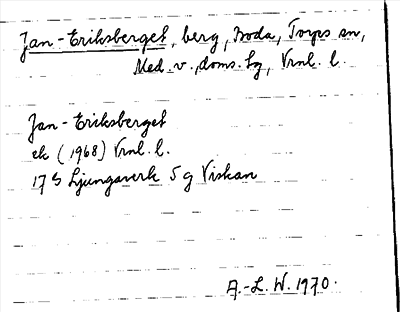 Jan-Eriksberget, berg, Boda, Torps sn,
Med. v., doms. hg, Vrnl. l.
Jan-Eriksberget
ek (1968) Vrnl. l.
17 G Ljungaverk 5 g Viskan
A.-L. W. 1970.